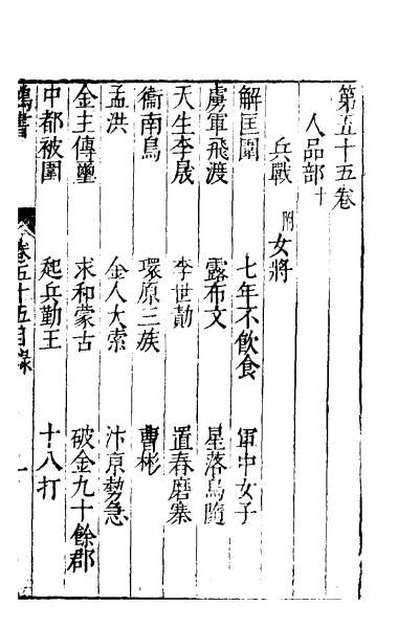 第五十五卷
人品部十
兵戰 附女將
解匡圍 七年不飲食 軍中女子
虜軍飛渡 露布文 星落烏隨
天生李晟 李世勣 置舂磨寨
衞南鳥 環原三族 曹彬
孟洪 金人大索 汴京勢急
金主傳璽 求和蒙古 破金九十餘郡
中都被圍 起兵勤王 十八打
卷五十五目錄